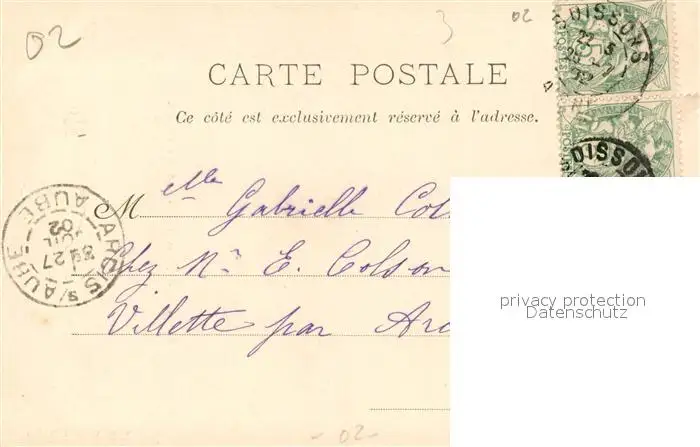 02
3
02
SOISSONS
22 5
CARTE POSTALE
Ce côté est exclusivement réservé à l'adresse.
SOISSONS
Melle Gabrielle Col
Chez Mr E. Colson
Villette par Arc
ARCIS S/ AUBE
27
JUIL
02
AUBE
privacy protection
Datenschutz
- 02 -